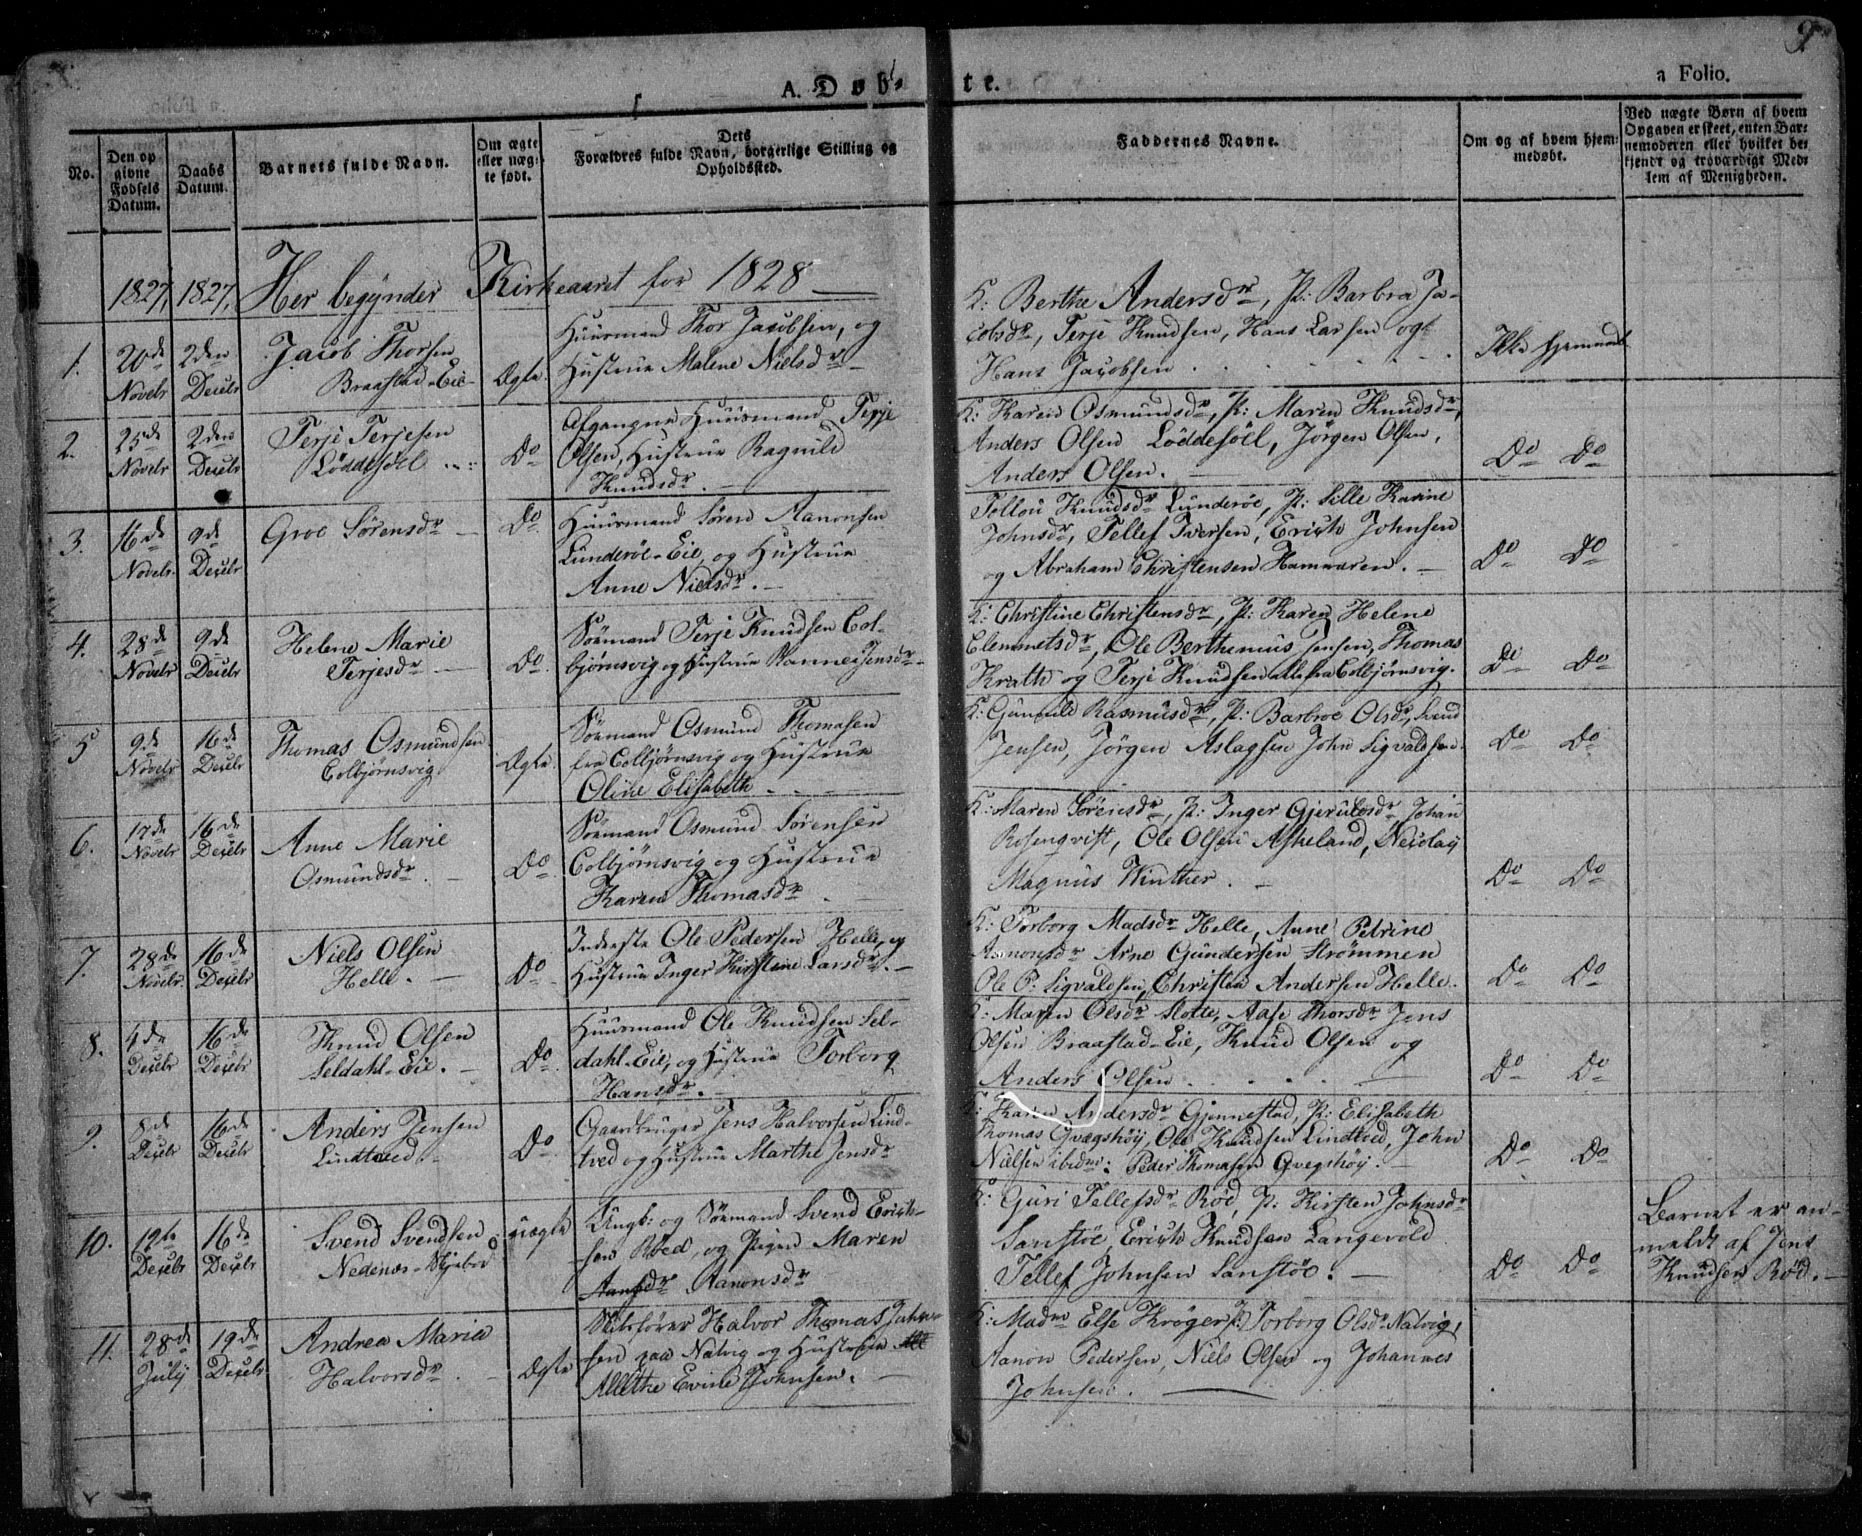 A. Døbte.
9
a Folio.
No.
Den op
givne
Fødsels
Datum.
Daabs
Datum.
Barnets fulde Navn.
Om ægte
eller uæg-
te født.
Dets
Forældres fulde Navn, borgerlige Stilling og
Opholdssted.
Faddernes Navne.
Om og af hvem hjem-
medøbt.
Ved uægte Børn af hvem
Opgaven er skeet, enten Bar-
nemoderen eller hvilket be-
kjendt og troværdigt Med-
lem af Menigheden.
1827, 1827, Her begynder Kirkeaaret for 1828
1.
20de
Novebr
2den
Decebr
Jacob Thorsen
Braastad-Eie
Ægte.
Huusmand Thor Jacobsen, og
Hustrue Malene Nielsdr
K: Berthe Andersdr, P: Barbra Ja-
cobsdr, Terje Knudsen, Hans Larsen og
Hans Jacobsen
Ikke hjemmedt
2.
25de
Novebr
2den
Decebr
Terje Terjesen
Løddesöel
Do
Afgangne Huusmand Terje
Olsen, Hustrue Ragnild
Knudsdr.
K: Karen Osmundsdr, P: Maren Knudsdr,
Anders Olsen Löddesöel, Jörgen Olsen,
Anders Olsen.
Do Do
3.
16de
Novebr
9de
Decebr
Groe Sørensdr
Do
Huusmand Søren Aanonsen
Lunderöe-Eie, og Hustrue
Anne Nielsdr.
Knudsdr Lunderöe, P: Sille Karine
Johnsdr, Tellef Iversen, Erich Johnsen
og Abraham Christensen
Do Do
4.
28de
Novebr
9de
Decebr
Helene Marie
Terjesdr
Do
Sømand Terje Knudsen Col-
bjørnsvig og Hustrue Jensdr
K: Christine Christensdr, P: Karen Helene
Clemmetsdr, Ole Berthenius Jensen, Thomas
Krath og Terje Knudsen alle fra Colbjørnsvig.
Do Do
5
9de
Novebr
16de
Decebr
Thomas Osmundsen
Colbjørnsvig
Ægte.
Sømand Osmund Thomasen
fra Colbjørnsvig og Hustrue
Oline Elisabeth
K: Gunnild Rasmusdr, P: Barbroe Olsdr, Svend
Jensen, Jörgen Aslagsen John Sigvaldsen.
Do Do
6.
17de
Novebr
16de
Decebr
Anne Marie
Osmundsdr.
Do
Sømand Osmund Sørensen
Colbjørnsvig og Hustrue
Karen Thomasdr
K: Maren Sørensdr, P: Inger Johan
Rosenqvist, Ole Olsen Askeland, Nicolay
Magnus Winther.
Do Do
7.
28de
Novebr.
16de
Decebr
Niels Olsen
Helle.
Do
Inderste Ole Pedersen Helle, og
Hustrue Inger Kirstine Larsdr.
K: Torborg Madsdr Helle, Anne Petrine
Aanonsdr Arne Gundersen Strømmen
Ole P. Sigvaldsen, Christen Andersen Helle.
Do Do
8.
4de
Decebr
16de
Decebr
Knud Olsen
Seldahl-Eie.
Do
Huusmand Ole Knudsen Sel-
dahl-Eie, og Hustrue Torborg
Hansdr.
K: Maren Olsdr Slotte, Aase Thorsdr Jens
Olsen Braastad-Eie, Knud Olsen og
Anders Olsen.
Do Do
9.
8de
Decebr
16de
Decebr
Anders Jensen
Lindtved
Do
Gaardbruger Jens Halvorsen Lind-
tved og Hustrue Marthe Jensdr
K: Karen Andersdr Gjennestad, P: Elisabeth
Thomas Qvægshøy, Ole Knudsen Lindtved, John
Nielsen ibidm: Peder Thomasen Qvegshöy.
Do Do
10.
12te
Decebr
16de
Decebr
Svend Svendsen
Nedenæs-
uægte
Ungk: og Sømand Svend Erich-
sen Röed, og Pigen Maren
Aanonsdr
K: Guri Tellefsdr Röd, P: Kirsten Johnsdr
Sanstöe, Erich Knudsen Langevold
Tellef Johnsen Sanstöe.
Do Do
Barnet er an-
meldt af Jens
Knudsen Röd.
11.
28de
July
19de
Decebr
Andrea Maria
Halvorsdr
Ægte
Skibsfører Halvor Thomas John-
sen paa Natvig og Hustrue
Allethe Evine Johnsen.
K: Madm Else Krøger P: Torborg Olsdr Natvig,
Aanon Pedersen, Niels Olsen og Johannes
Johnsen.